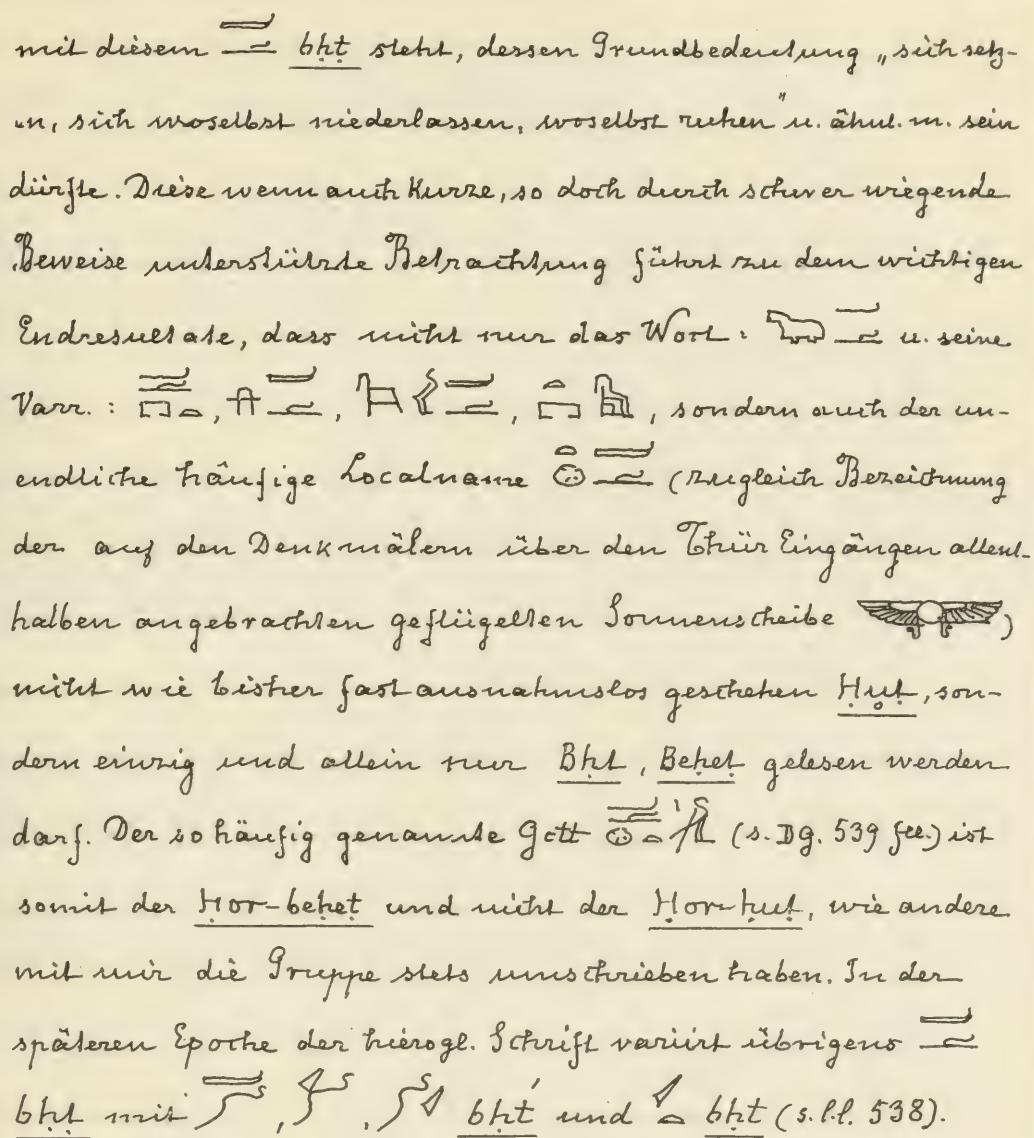 mit diesem bḥt steht, dessen Grundbedeutung „sich setz-
en, sich woselbst niederlassen, woselbst ruhen" u. ähnl. m. sein
dürfte. Diese wenn auch Kurze, so doch durch schwer wiegende
Beweise unterstützte Betrachtung führt zu dem wichtigen
Endresultate, dass nicht nur das Wort: u. seine
Varr.: , , , , sondern auch der un-
endliche häufige Localname (zugleich Bezeichnung
der auf den Denkmälern über den Thür Eingängen allent-
halben angebrachten geflügelten Sonnenscheibe )
nicht wie bisher fast ausnahmslos geschehen Ḥuṭ, son-
dern einzig und allein nur Bḥṭ, Beḥeṭ gelesen werden
darf. Der so häufig genannte Gott (s. Dg. 539 fll.) ist
somit der Ḥor-beḥeṭ und nicht der Ḥor-ḥuṭ, wie andere
mit mir die Gruppe stets umschrieben haben. In der
späteren Epoche der hierogl. Schrift variirt übrigens
bḥṭ mit , , bḥt́ und bḥṭ (s. l.l. 538).